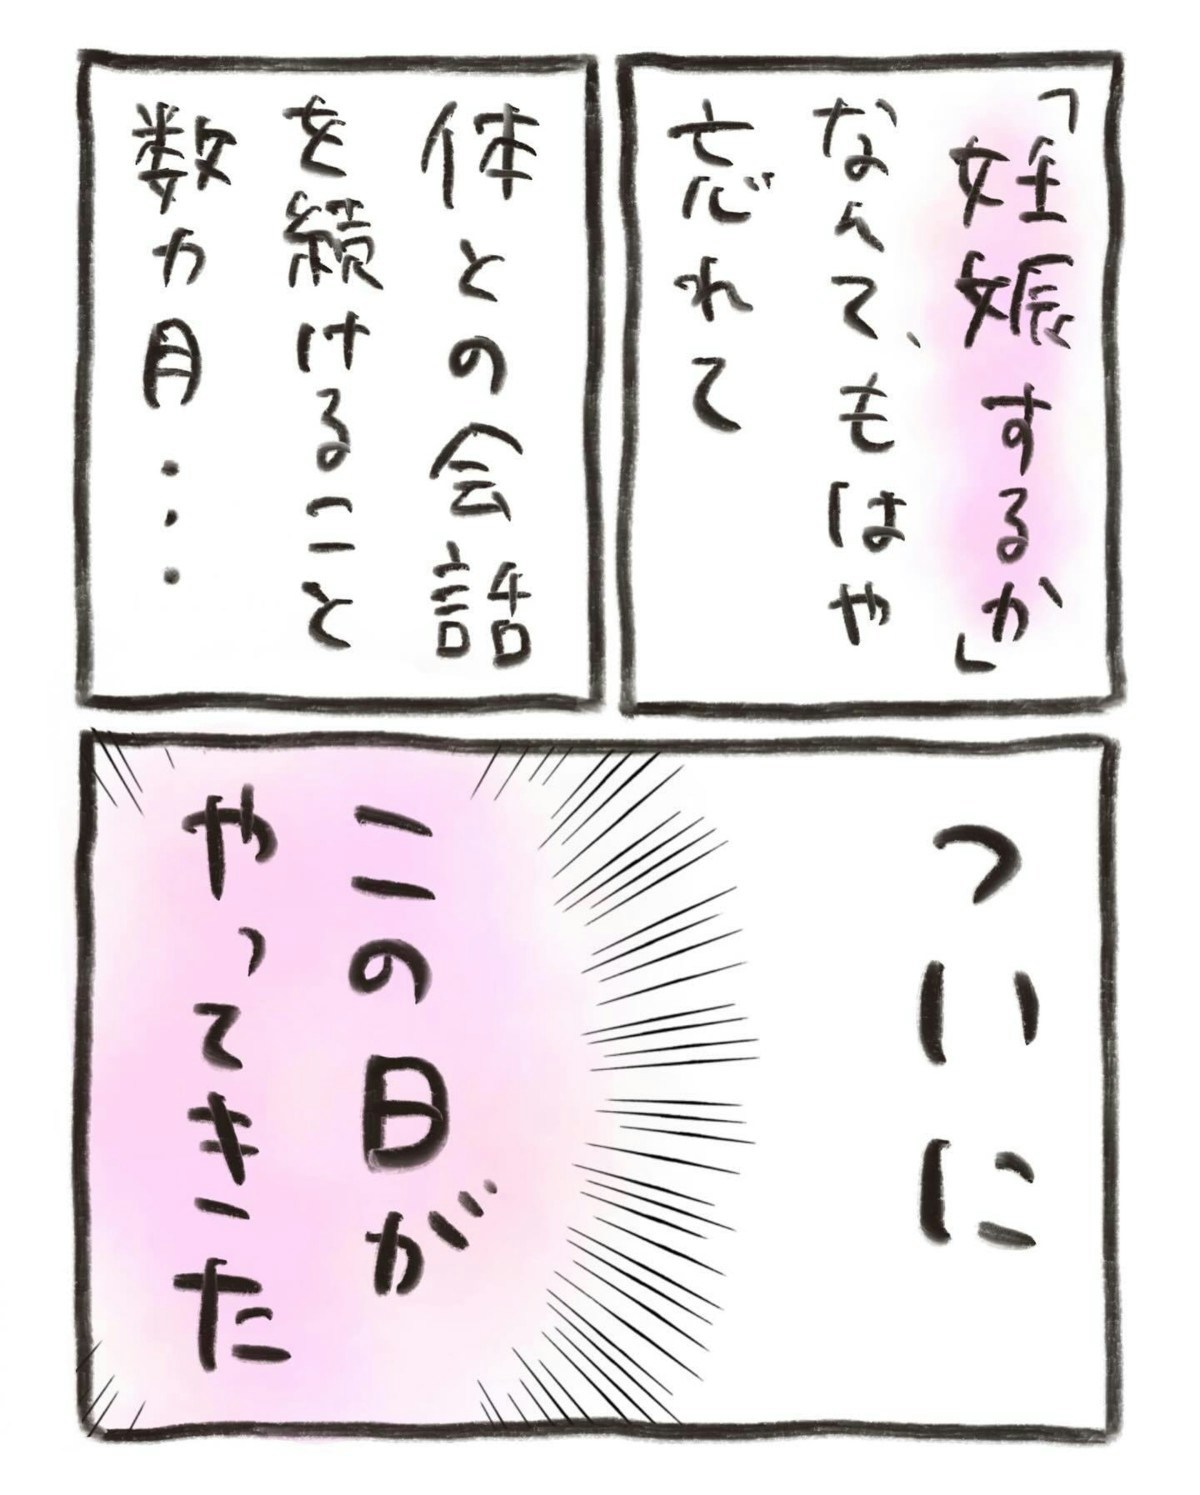 「妊娠するか」
なんて、もはや
忘れて
体との会話
を続けること
数ヵ月…
ついに
この日が
やってきた